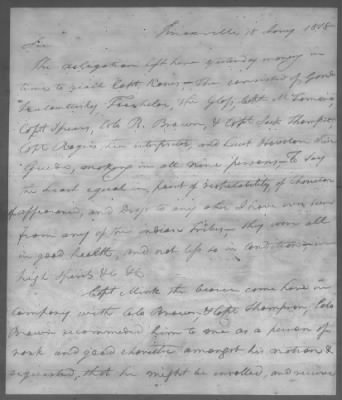 Knoxville 18 Jany 1818
Sir
The delegation left here yesterday morning in
time to reach Capt
The Glass, Capt. McLemore
Capt Spears, Colo R. Brown, & Capt Jack Thompson,
Capt Rogers their interpreter, and Lieut Houston their
Guide, making in all nine persons — To say
the least equal in point of respectability of Character
appearance, and dress to any other I have ever seen
from any of the Indian tribes — they were all
in good health, and not less so in condition — in
high spirits &c &c
Capt the bearer come here in
company with Colo Brown, & Capt Thompson, Colo
Brown recommended him to me as a person of
rank and good character amongst his nation &
requested, that he might be enrolled, and receive